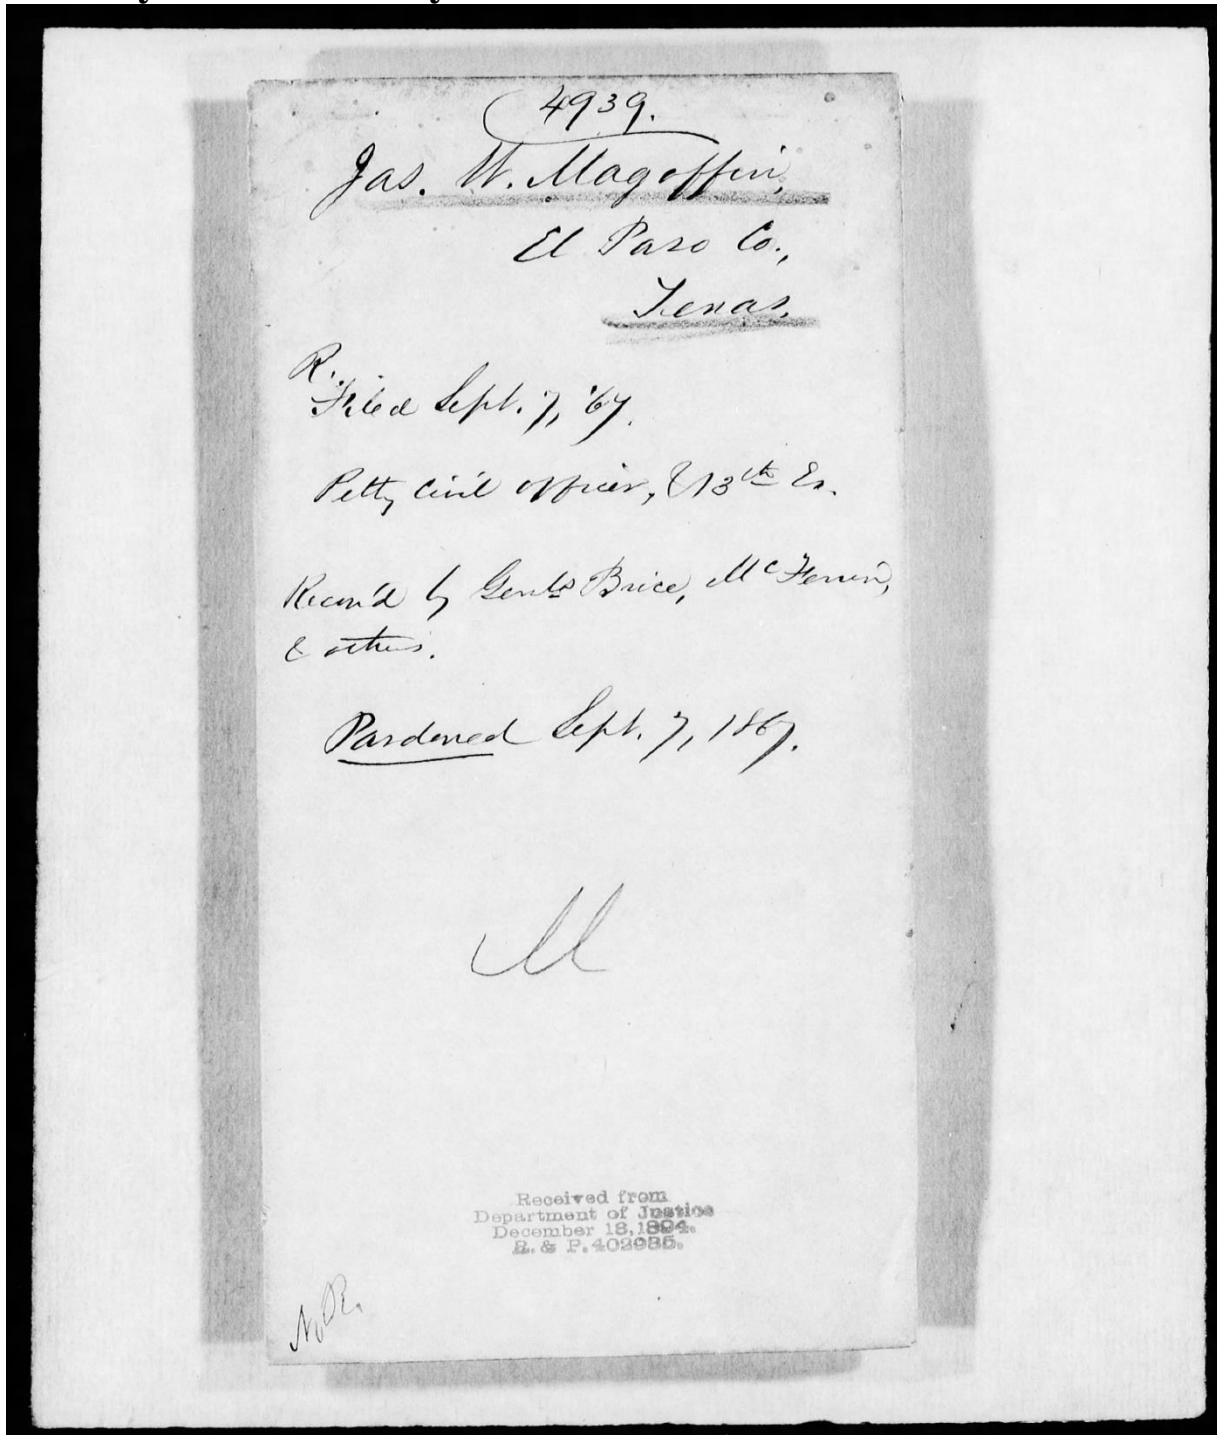 4939.
Jas. W. Magoffin,
El Paso Co.,
Texas.
R.
Filed Sept. 7, '67.
Petty Civil officer, & 13th Ex.
Recom'd by Genls Brice, McFerrin,
& others.
Pardoned Sept. 7, 1867.
M
Received from
Department of Justice
December 18, 1894.
R. & P. 402985.
N.R.